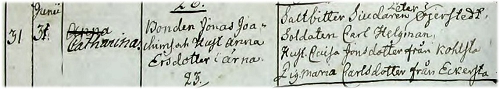 Junii
31 31. Anna Catharina.
Bonden Jonas Joa-
chimsoh Hust. Anna
Ersdotter i Arna.
23.
Peter i
Saltbitter Siudaren Öjerstedt,
Soldaten Carl Helgman,
Hust. Caisa Jonsdotter från Kohlsta
Pig. Maria Carlsdotter från Eckersta